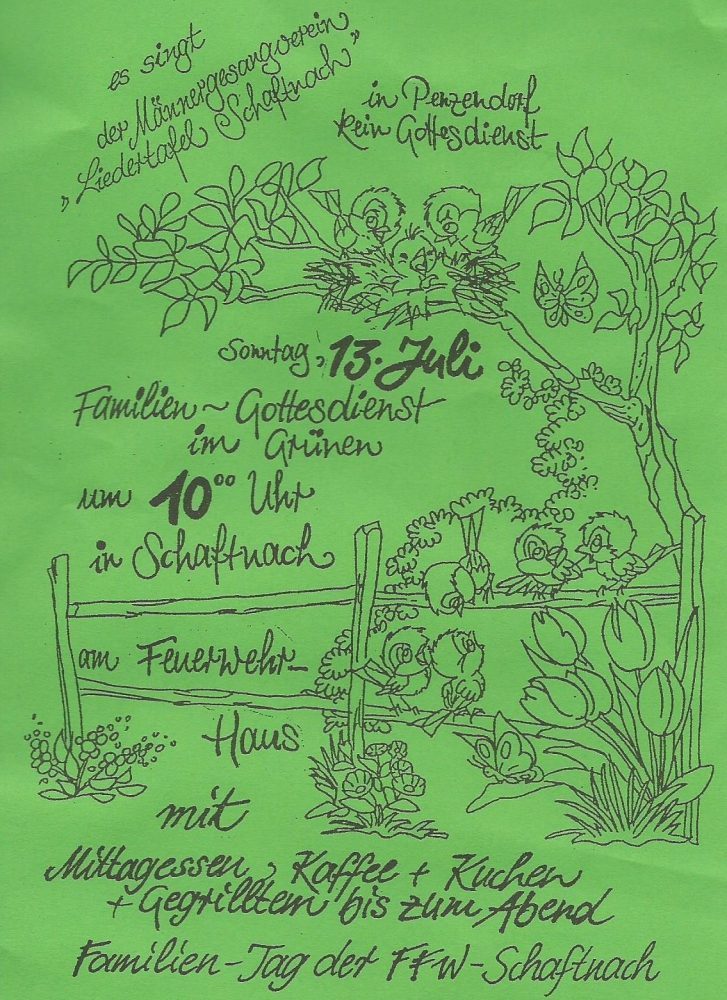 es singt
der Männergesangverein
„Liedertafel Schaftnach"
in Penzendorf
kein Gottesdienst
Sonntag, 13. Juli
Familien~Gottesdienst
im Grünen
um 10⁰⁰ Uhr
in Schaftnach
am Feuerwehr-
Haus
mit
Mittagessen, Kaffee + Kuchen
+ Gegrilltem bis zum Abend
Familien-Tag der FFW-Schaftnach